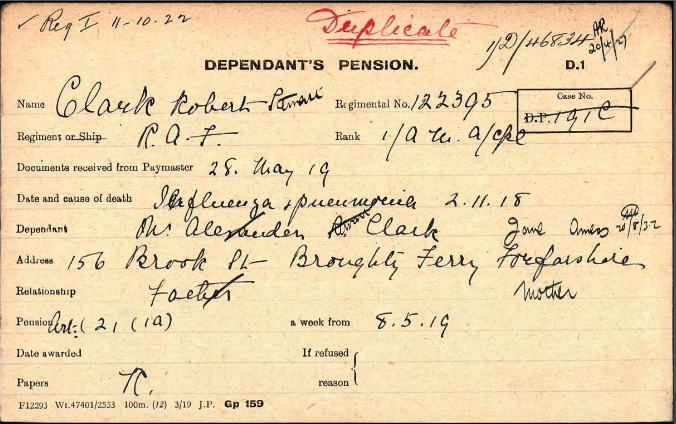 ✓ Reg I 11-10-22
Duplicate
1/D/46834 AR 20/4/27
DEPENDANT'S PENSION. D.1
Name Clark Robert Stewart Regimental No. 122395 Case No.
Regiment or Ship R.A.F. Rank 1/A.M. a/cpl D.P. 191C
Documents received from Paymaster 28. May 19
Date and cause of death Influenza & pneumonia 2.11.18
Dependant Mr Alexander Clark Jane 20/8/32
Address 156 Brook St Broughty Ferry Forfarshire
Relationship Father Mother
Pension Art: (21 (1A) a week from 8.5.19
Date awarded If refused
Papers R. reason
F12293 Wt.47401/2553 100m. (12) 3/19 J.P. Gp 159